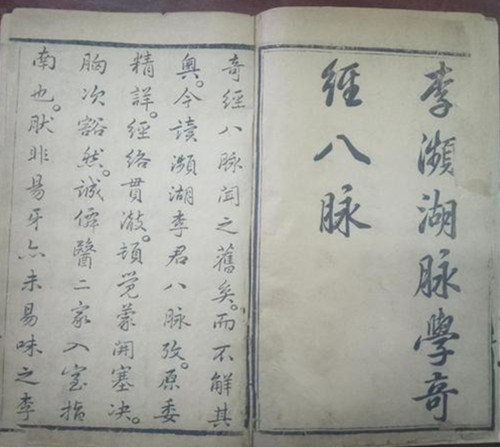 李瀕湖脉學奇
經八脉
奇經八脉闻之舊矣。而不解其
奥。今读瀕湖李君八脉攷。原委
精詳。經络贯澈。顿觉蒙開塞决。
胸次豁然。诚僊醫二家入室指
南也。肰非易牙亦未易味之李